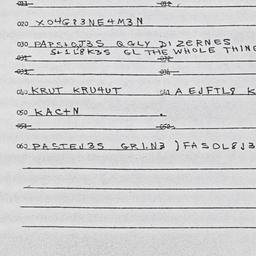 011 012
020 XO4G83NE4M3N
030 PAPS1OJ3S QGLY DIZERNES
S+1L8K3S GL THE WHOLE THING
040 KRUT KRU4UT 041 A EJFTL8 K
050 KACTN
051 052
062 PASTEJ3S GRIN3 ) FASOL8J3